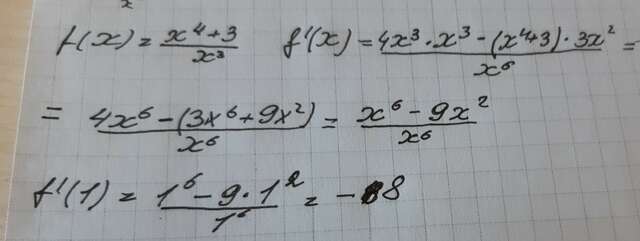 f(x) = (x⁴+3)/x³ f'(x) = (4x³·x³-(x⁴+3)·3x²)/x⁶ =
= (4x⁶-(3x⁶+9x²))/x⁶ = (x⁶-9x²)/x⁶
f'(1) = (1⁶-9·1²)/1⁶ = -8